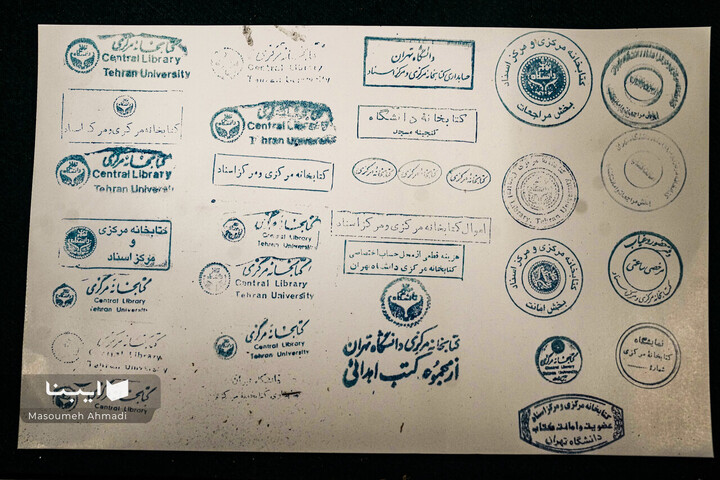 کتابخانه مرکزی
Central Library
Tehran University
کتابخانه مرکزی و مرکز اسناد
کتابخانه مرکزی
Tehran University
کتابخانه مرکزی
و
مرکز اسناد
کتابخانه مرکزی
Central Library
Tehran University
کتابخانه مرکزی
Central Library
Central Library
کتابخانه مرکزی
Central Library
Tehran University
کتابخانه مرکزی
Central Library
Tehran University
کتابخانه مرکزی و مرکز اسناد
کتابخانه مرکزی
Central Library
Tehran University
کتابخانه مرکزی
Central Library
Tehran University
کتابخانه مرکزی
Central Library
Tehran University
دانشگاه تهران
دانشگاه تهران
حسابداری کتابخانه مرکزی و مرکز اسناد
کتابخانه دانشگاه
گنجینه مسجد
کتابخانه مرکزی
کتابخانه مرکزی
کتابخانه مرکزی
اموال کتابخانه مرکزی و مرکز اسناد
هزینه قطعی از محل حساب اختصاصی
کتابخانه مرکزی دانشگاه تهران
کتابخانه مرکزی دانشگاه تهران
از مجموعه کتب اهدائی
کتابخانه مرکزی و مرکز اسناد
بخش مراجعات
کتابخانه مرکزی و مرکز اسناد
بخش امانت
کتابخانه مرکزی
Central Library
Tehran University
حضور و غیاب
مرخصی ساعتی
کتابخانه مرکزی و مرکز اسناد
نمایشگاه
کتابخانه مرکزی
شماره
کتابخانه مرکزی و مرکز اسناد
عضویت و امانت کتاب
دانشگاه تهران
ایبنا
Masoumeh Ahmadi